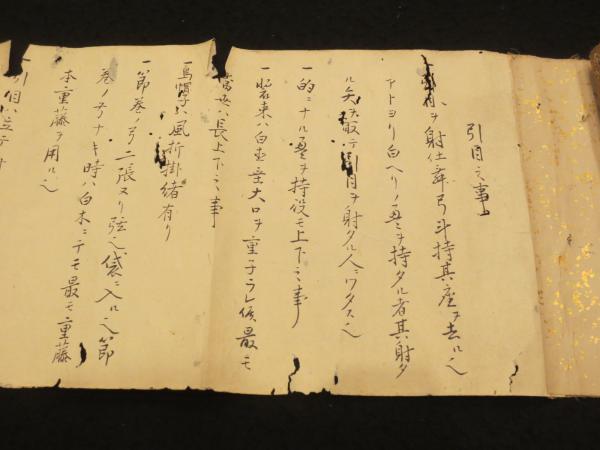 引目之事
一引目ヲ射仕舞弓斗持其座ヲ去ルヘ
アトヨリ白ヘリノ畳ヲ持タル者其射タ
ル矢ヲ取テ引目ヲ射タル人ニワタスヘ
一的ニナル畳ヲ持役モ上下之事
一装束ハ白直垂大口ヲ重子ラレ候最モ
當世ハ長上下之事
一烏帽子ハ風折掛緒有リ
一節巻ノ弓二張ヌリ弦ヘ袋ニ入ルヘ節
巻ノ弓ナキ時ハ白木ニテモ最モ重藤
本重藤ヲ用ルヘ
一引目ハ